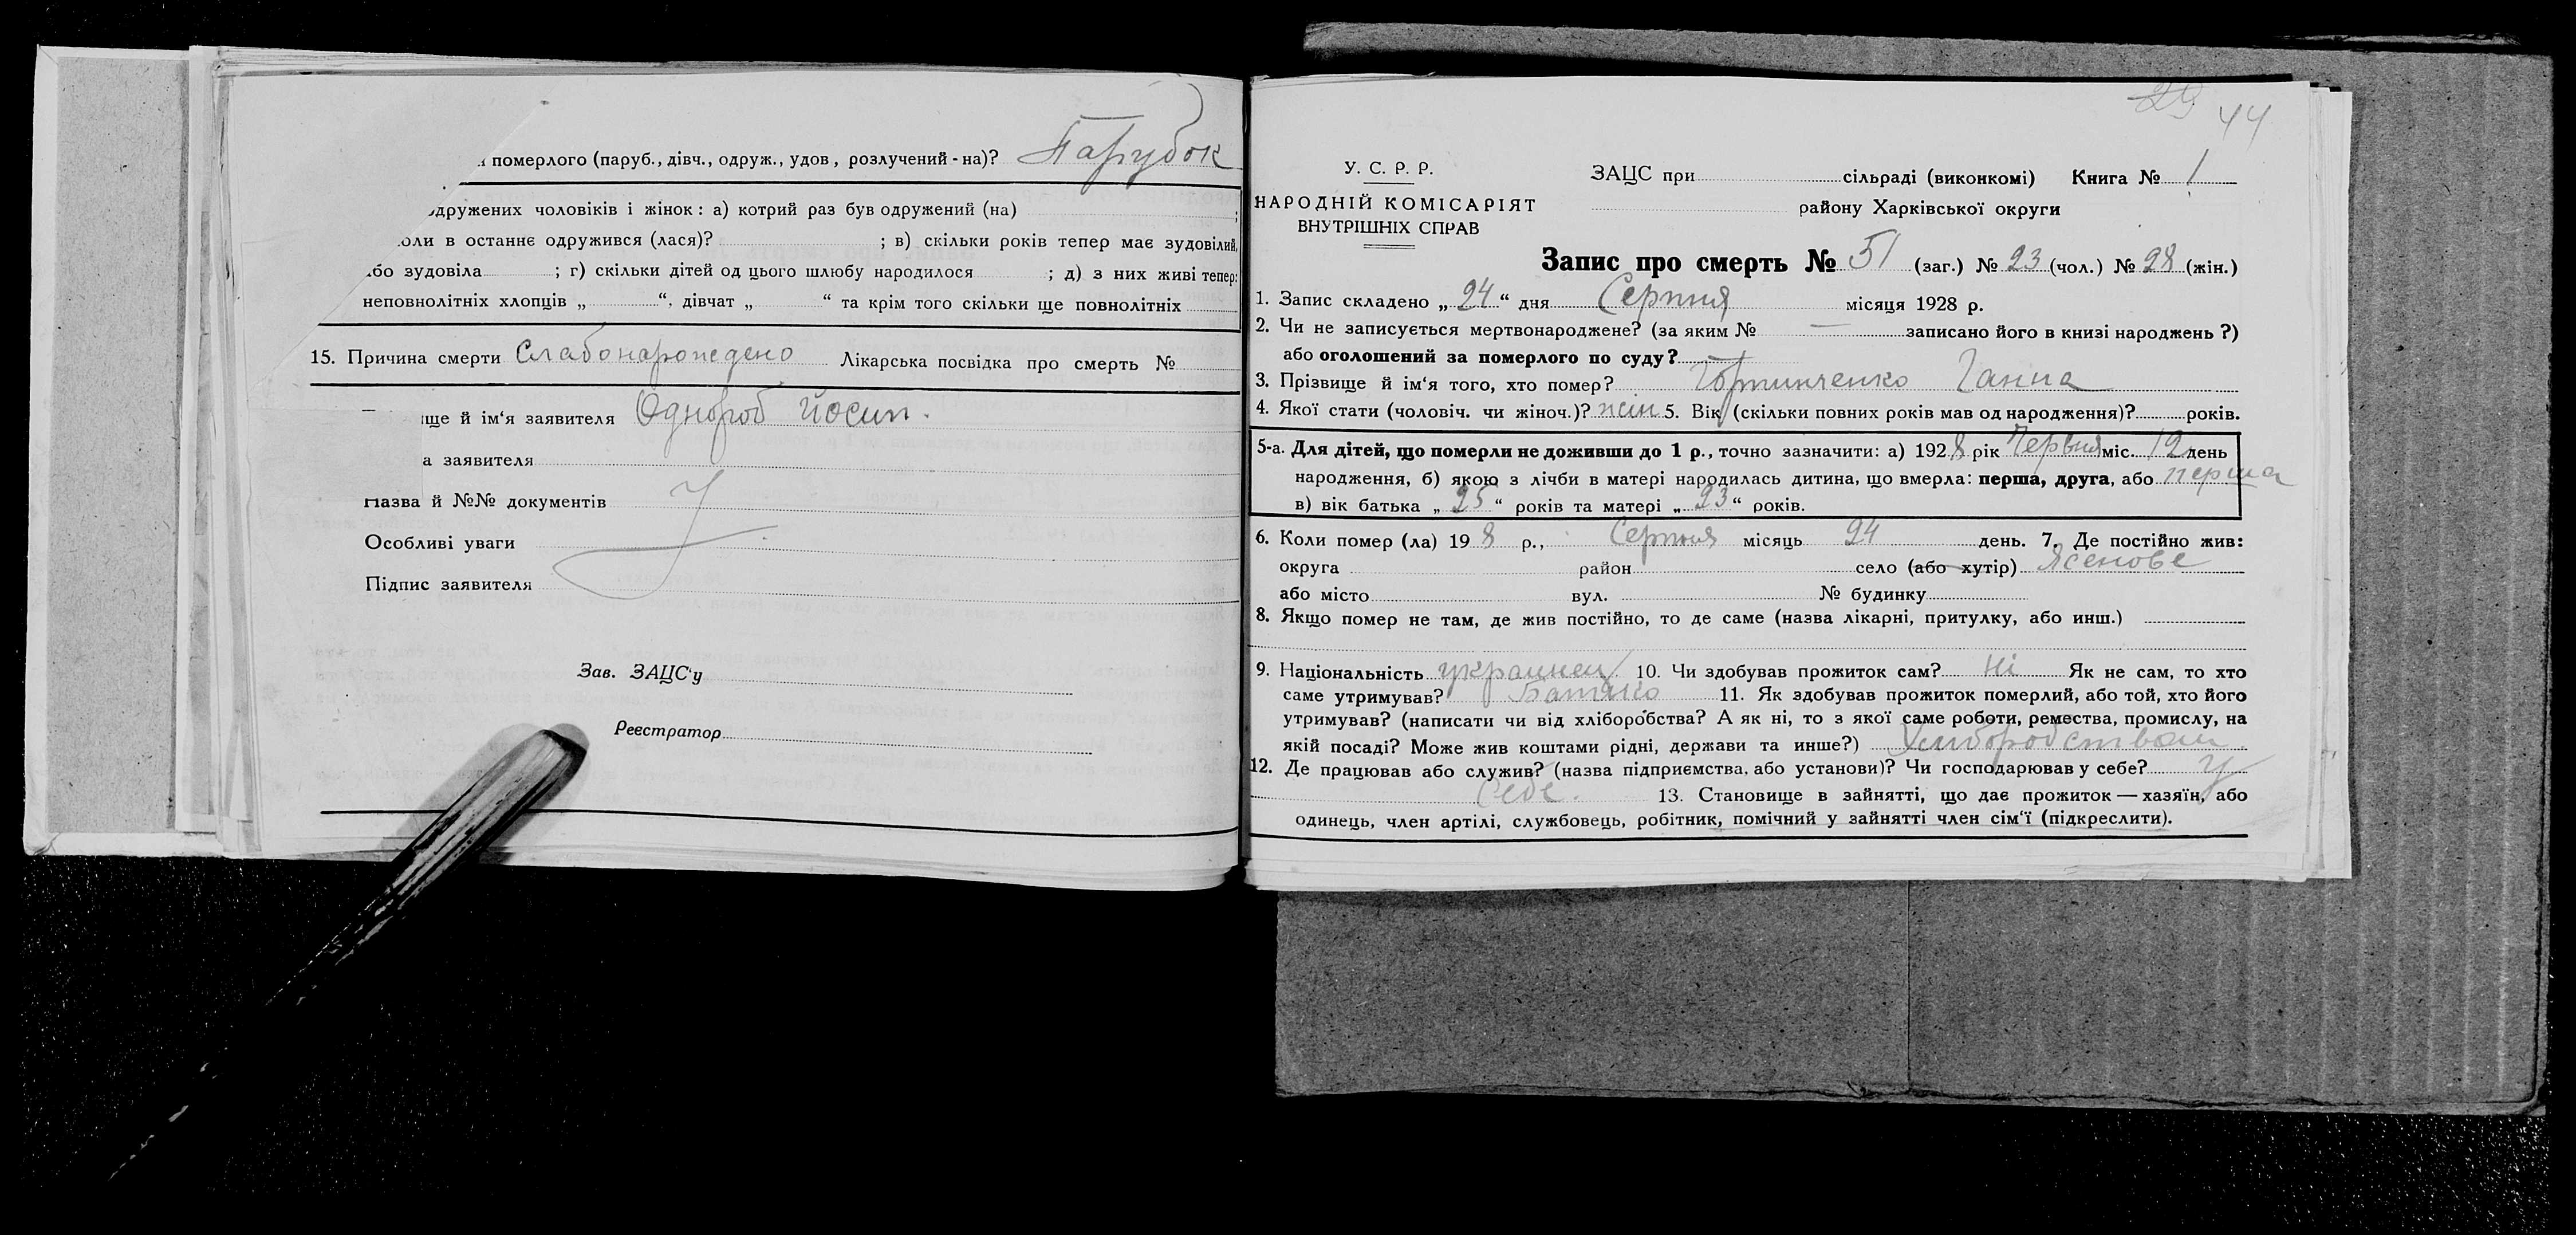 померлого (паруб., дівч., одруж., удов, розлучений-на)? Парубок
дружених чоловіків і жінок: а) котрий раз був одружений (на) ;
оли в останнє одружився (лася)? ; в) скільки років тепер має зудовілий,
або зудовіла ; г) скільки дітей од цього шлюбу народилося ; д) з них живі тепер:
неповнолітніх хлопців „ “, дівчат „ “ та крім того скільки ще повнолітніх
15. Причина смерти Слабонарождено Лікарська посвідка про смерть №
ще й ім‘я заявителя Однороб Йосип.
а заявителя
Назва й №№ документів
Особливі уваги
Підпис заявителя
Зав. ЗАЦС‘у
Реєстратор
29 44
У. С. Р. Р.
НАРОДНІЙ КОМІСАРІЯТ
ВНУТРІШНІХ СПРАВ
ЗАЦС при сільраді (виконкомі) Книга № 1
району Харківської округи
Запис про смерть № 51 (заг.) № 23 (чол.) № 28 (жін.)
1. Запис складено „ 24 “ дня Серпня місяця 1928 р.
2. Чи не записується мертвонароджене? (за яким № — записано його в книзі народжень ?)
або оголошений за померлого по суду?
3. Прізвище й ім‘я того, хто помер? Ганна
4. Якої стати (чоловіч. чи жіноч.)? жін 5. Вік (скільки повних років мав од народження)? років.
5-а. Для дітей, що померли не доживши до 1 р., точно зазначити: а) 1928 рік Червня міс. 12 день
народження, б) якою з лічби в матері народилась дитина, що вмерла: перша, друга, або перша
в) вік батька „ 25 “ років та матері „ 23 “ років.
6. Коли помер (ла) 19 8 р., Серпня місяць 24 день. 7. Де постійно жив:
округа район село (або хутір) Ясенове
або місто вул. № будинку
8. Якщо помер не там, де жив постійно, то де саме (назва лікарні, притулку, або инш.)
9. Національність украинец 10. Чи здобував прожиток сам? Ні Як не сам, то хто
саме утримував? Батько 11. Як здобував прожиток померлий, або той, хто його
утримував? (написати чи від хліборобства? А як ні, то з якої саме роботи, ремества, промислу, на
якій посаді? Може жив коштами рідні, держави та инше?) Хліборобством
12. Де працював або служив? (назва підприємства, або установи)? Чи господарював у себе? У
Себе. 13. Становище в зайнятті, що дає прожиток — хазяїн, або
одинець, член артілі, службовець, робітник, помічний у зайнятті член сім‘ї (підкреслити).